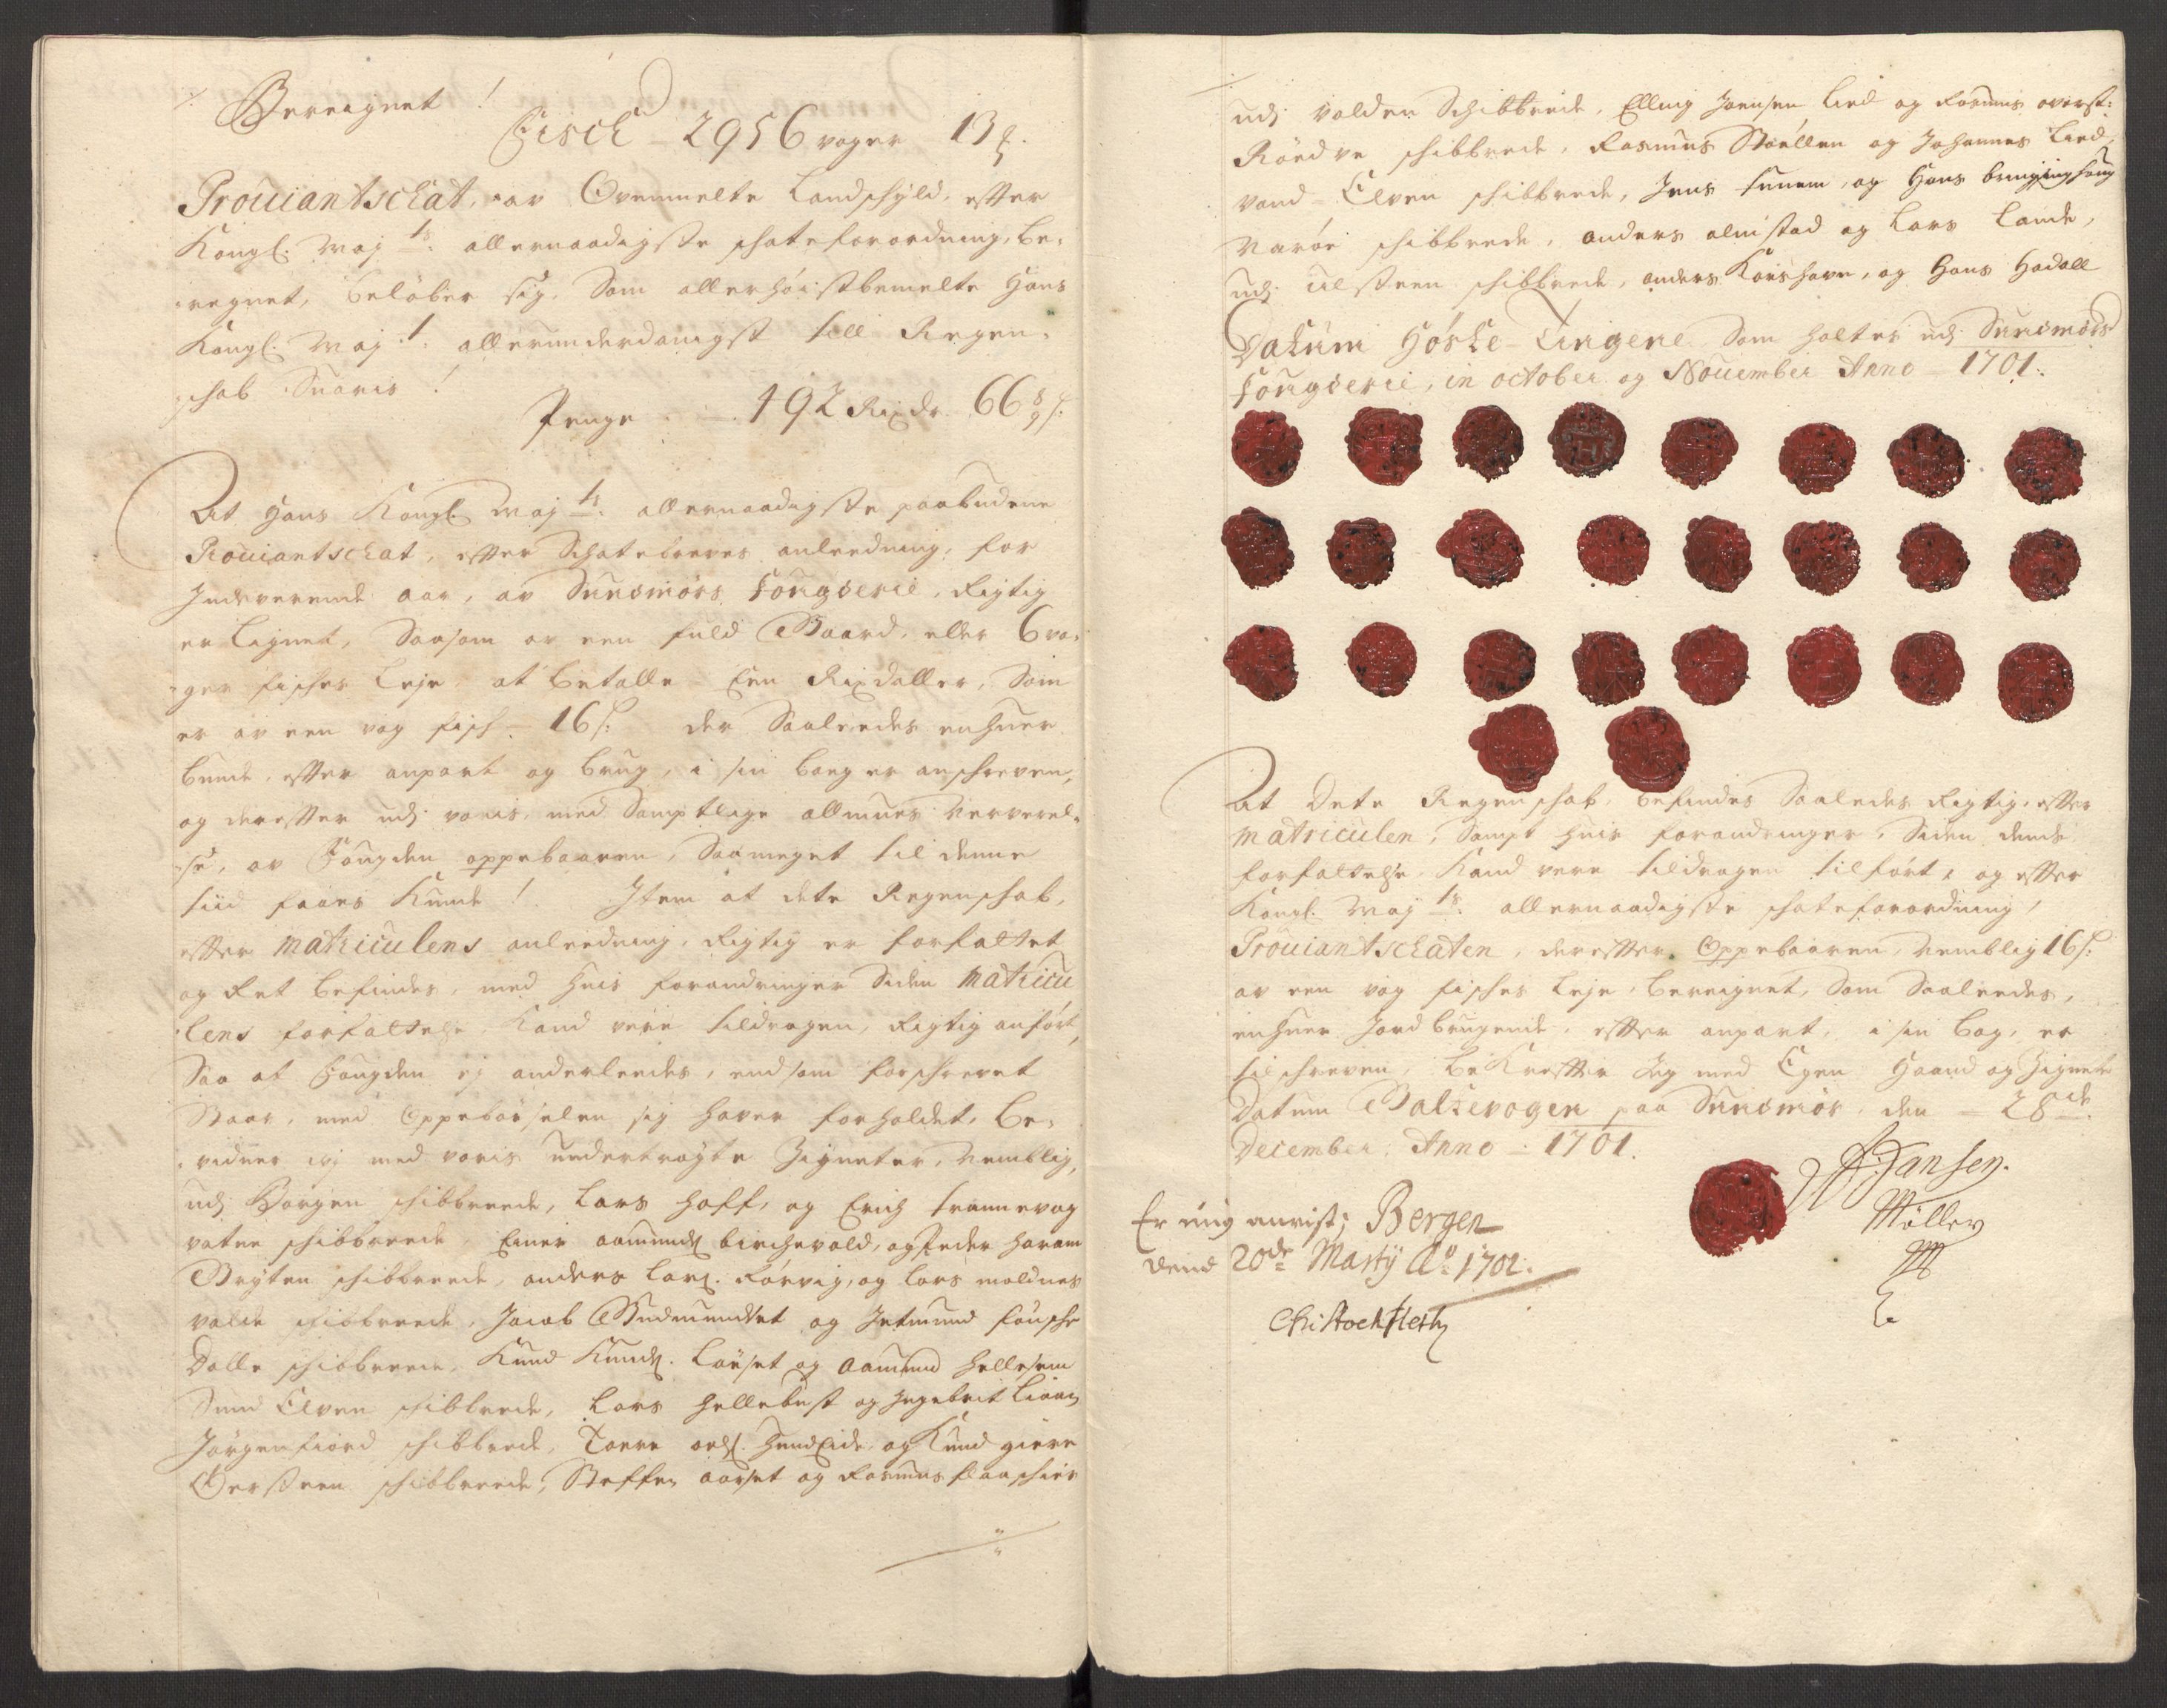 Bereignet!
Fisch - 2956 voger 13 ℔.
Proviantschat, av Ovenmelte Landschyld, effter
Kongl. Maj.ts allernaadigste schateforordning, be-
regnet, beløber sig, Som allerhøistbemelte Hans
Kongl. Maj.t allerunderdanigst till Regen-
schab Svaris!
Penge - 492 Rixdr. 66 8/9 ß.
At Hans Kongl. Maj.ts allernaadigste paabudene
Proviantschat, effter Schatebrevets anleedning, for
Indeverende aar, av Sundmørs Fougderie, Rigtig
er Lignet, Saasom av een fuld Gaard, eller 6 vo-
ger fisches Leje, at betalle Een Rixdaller, Som
er av een vog fisch 16 ß. der Saaleedes enhver
bunde, effter anpart og brug, i sin bog er anschreven,
og dereffter udj voris, med Samptlige allmues nerverel-
se, av Fougden oppebaaren, Saameget til denne
tiid faaes kunde! Item at dete Regenschab,
effter Matriculens anleedning, Rigtig er forfattet
og Ret befindes, med hvis forandringer Siden Matricu
lens forfattelse, Kand vere tildragen, Rigtig anført,
Saa at Fougden ej anderleedes, end som forschrevet
Staar, med Oppebørselen sig haver forholdet, be-
vidner wj med voris undertrøgte Zigneter, nemblig,
udj Borgen schibbreede, Lars Hoff, og Erich Trannevog
vatne schibbreede, Einer Aamunds. birchevold, og Peder Haram
Gryten schibbreede, anders Lars. Rørvig, og Lars moldnes
volde schibbreede, Jacob Gudmundset og Jetmund fousche
Dalle schibbreede, Knud Knuds. Løset og Aamund Hellesem
Sund Elven schibbrede, Lars Hellebust og Ingebrit Liaan
Jørgenfiord schibbrede, Tarre Ols. Hundeide, og Knud giere
Ørsteen schibbreede, Steffen Aarset og Rasmus flaaschier
udj volden Schibbrede, Elling Joensen Lied og Rasmus overst:
Røedve schibbrede, Rasmus Støllen og Johannes Lied,
vand Elven schibbrede, Jens Tunem, og Hans bringinghoug
Narøe schibbrede, anders almstad og Lars Lande,
udj Ulsteen schibbrede, anders Korshavn, og Hans Hadall
Datum Høste-Tingene Som holtes udj Sundmørs
Fougderie, in october og November Anno - 1701.
At Dete Regenschab, befindes Saaledes Rigtig, effter
Matriculen, Sampt hvis forandringer, Siden dends
forfattelse, Kand vere tildragen tilført, og effter
Kongl. Maj.ts allernaadigste schateforordning,
Proviantschaten, dereffter Oppebaaren, nemblig 16 ß:
av een vog fisches Leje, bereignet, Som Saaleedes,
enhver Jordbrugende, effter anpart, i sin bog, er
tilschreven, bekreffter Jeg med Egen Haand og Zignete
Datum Baldsvogen paa Sundmør, den - 28de
December, Anno - 1701.
Jansen.
Møller
Er mig anvist; Bergen
dend 20de Martij Ao. 1702.
Chr Stockfleth